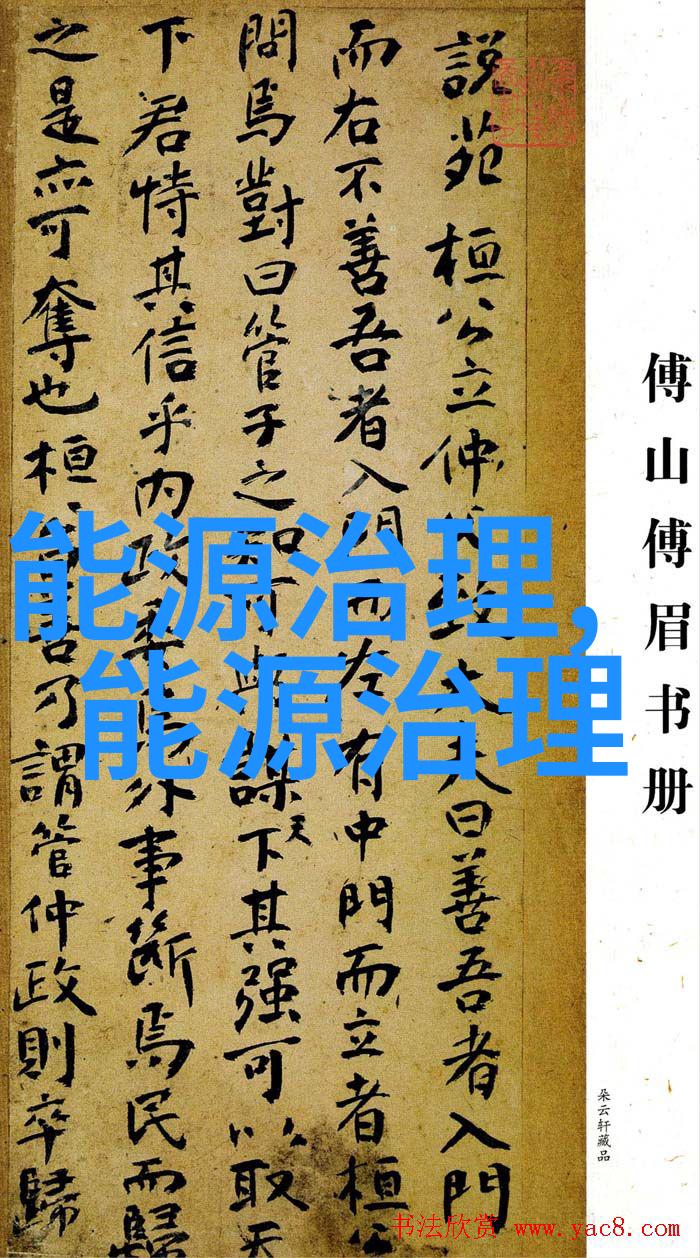 説苑 桓公立仲父致大夫曰善吾者入門
而右不善吾者入門而左有中門而立者桓公
問焉對曰管子之知可與謀天下其强可以取天
下君恃其信乎内政委焉外事斷焉民而歸
之是亦可奪也桓公曰善乃謂管仲政則卒歸
能源治理,
能源治理
傅山傅眉书册
朵云轩藏品
书法欣赏 www.yac8.com